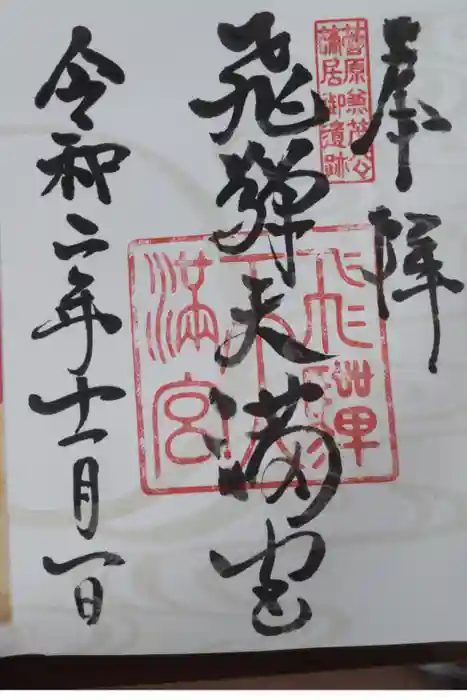 奉拝
菅原兼茂公
謫居御遺跡
飛騨天満宮
飛騨天満宮
令和二年十一月一日